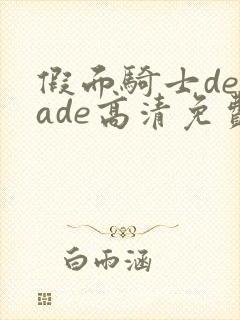 假面騎士de
ade高清免費
白雨涵